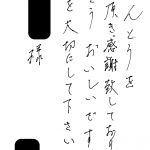 んとうを
頂き感謝致しており
とう おいしいです
を大切にして下さい
様